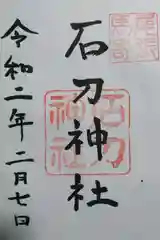 石刀神社
令和二年二月七日
石刀
神社